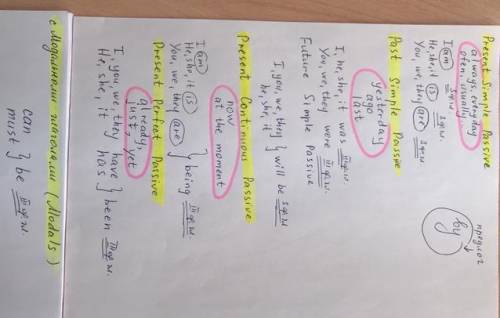 предлог
by
Present Simple Passive
always, everyday
often, usually
I am
He, she, it is
You, we, they are
Past Simple Passive
yesterday
ago
last
I, he, she, it was
You, we, they were
Future Simple Passive
I, you, we, they } will be
he, she, it
Present Continuous Passive
now
at the moment
I am
He, she, it is } being
You, we, they are
Present Perfect Passive
already,
just, yet
I, you, we, they have } been
He, she, it has
с Модальными глаголами (Modals)
can } be
must